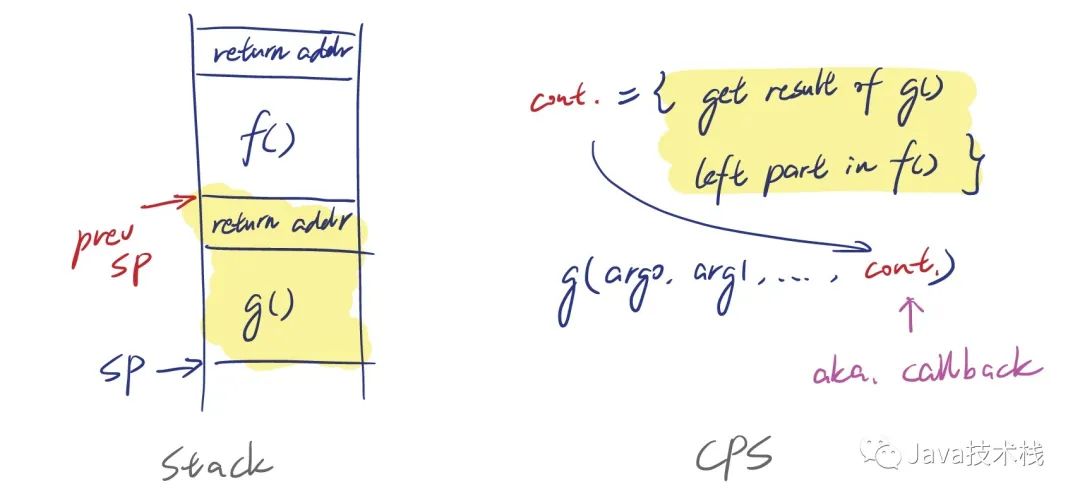 return addr
f()
prev
SP
return addr
g()
SP
Stack
cont. = { get result of g()
left part in f() }
g(arg0, arg1, ..., cont.)
aka. callback
CPS
Java技术栈